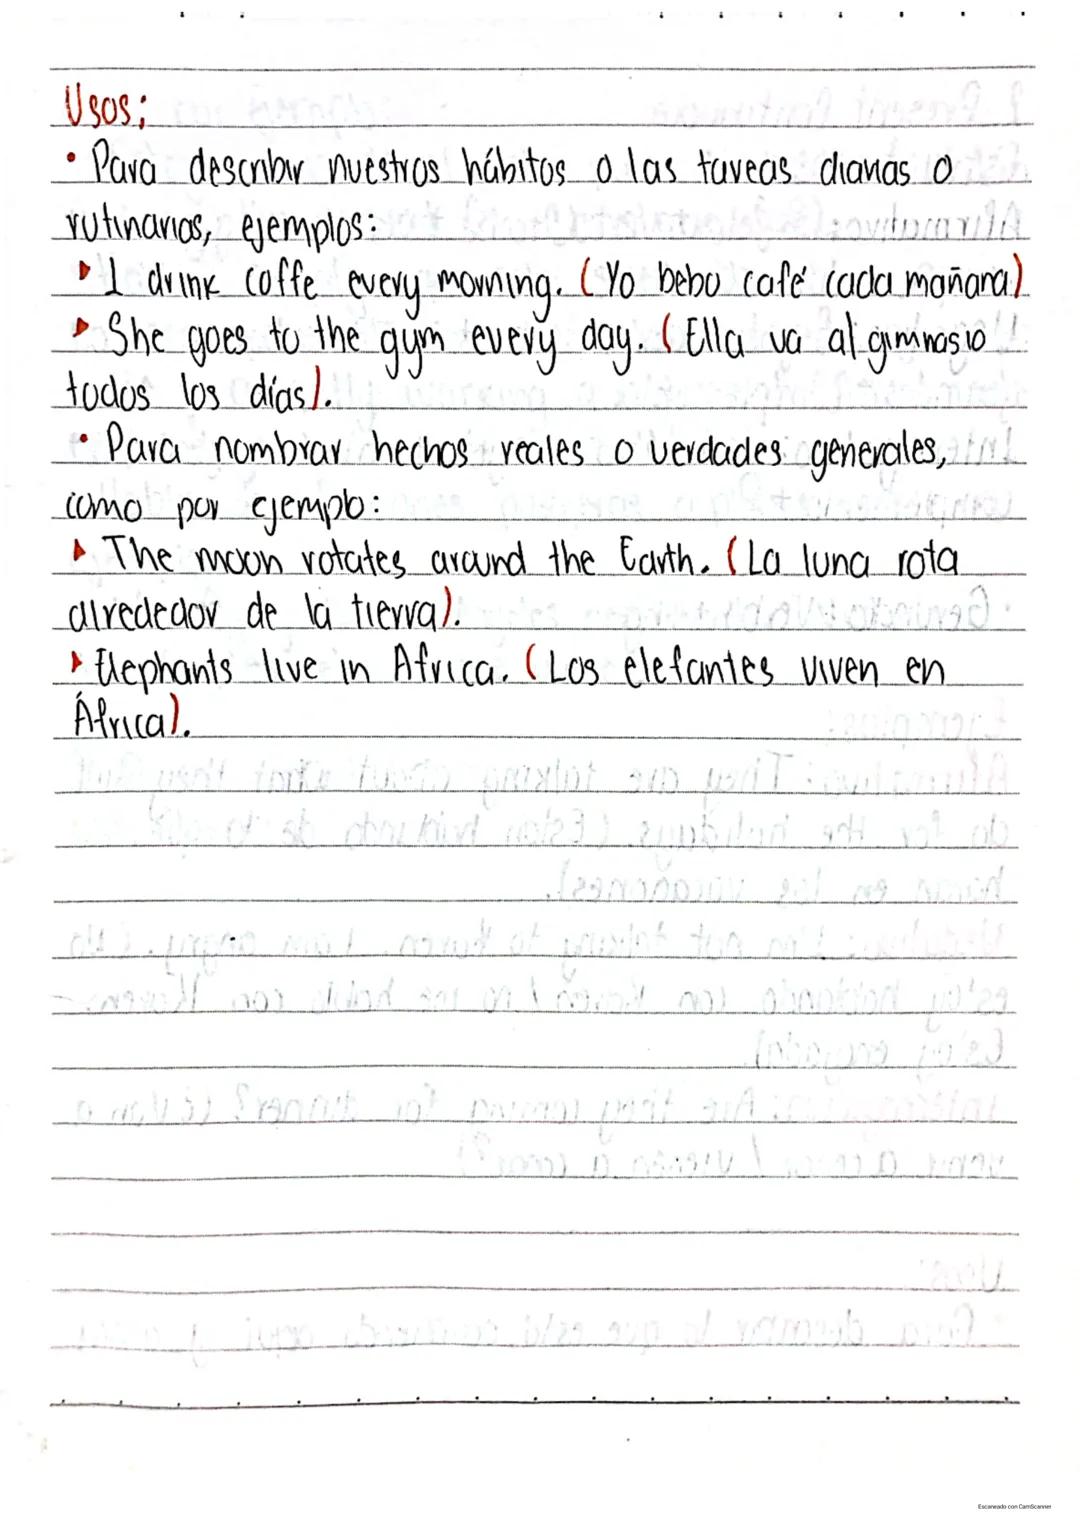 Usos:
• Para describir nuestros hábitos o las tareas diarias o
rutinarias, ejemplos:
▸ I drink coffe every morning. (Yo bebo café cada mañana)
▸ She goes to the gym every day. (Ella va al gimnasio
todos los días).
• Para nombrar hechos reales o verdades generales,
como por ejemplo:
▸ The moon rotates around the Earth. (La luna rota
alrededor de la tierra).
▸ Elephants live in Africa. (Los elefantes viven en
África).
Escaneado con CamScanner